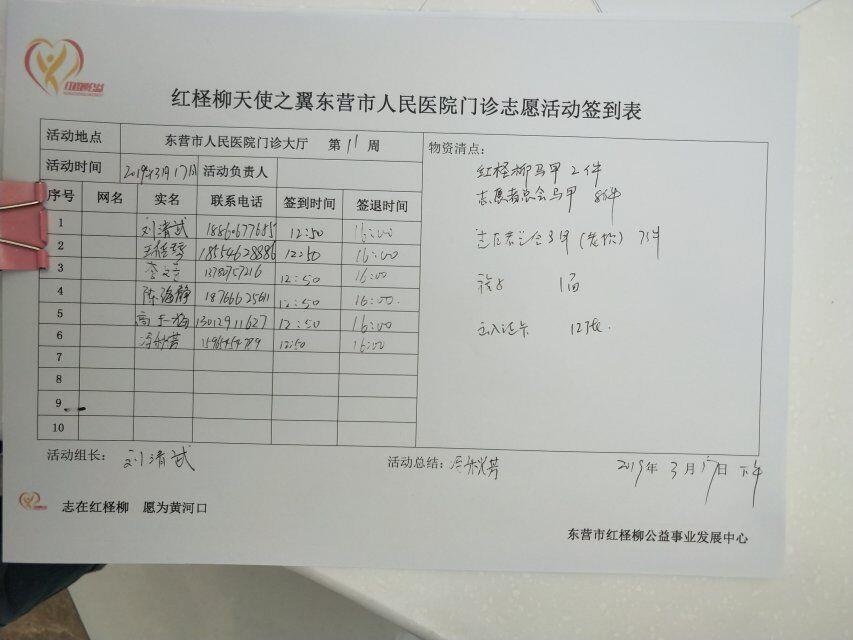 红柽柳天使之翼东营市人民医院门诊志愿活动签到表
活动地点 东营市人民医院门诊大厅 第 11 周
活动时间 2019年3月17日 活动负责人
序号 网名 实名 联系电话 签到时间 签退时间
1 刘清武 18860677655 12:50 16:00
2 18554628886 12:50 16:00
3 13780757216 12:50 16:00
4 陈海静 18766625611 12:50 16:00
5 13012911627 12:50 16:00
6 12:50 16:00
7
8
9
10
物资清点:
红柽柳马甲 2件
志愿者总会马甲 8件
1面
12张
活动组长: 刘清武
活动总结:
2019年 3月17日 下午
志在红柽柳 愿为黄河口
东营市红柽柳公益事业发展中心